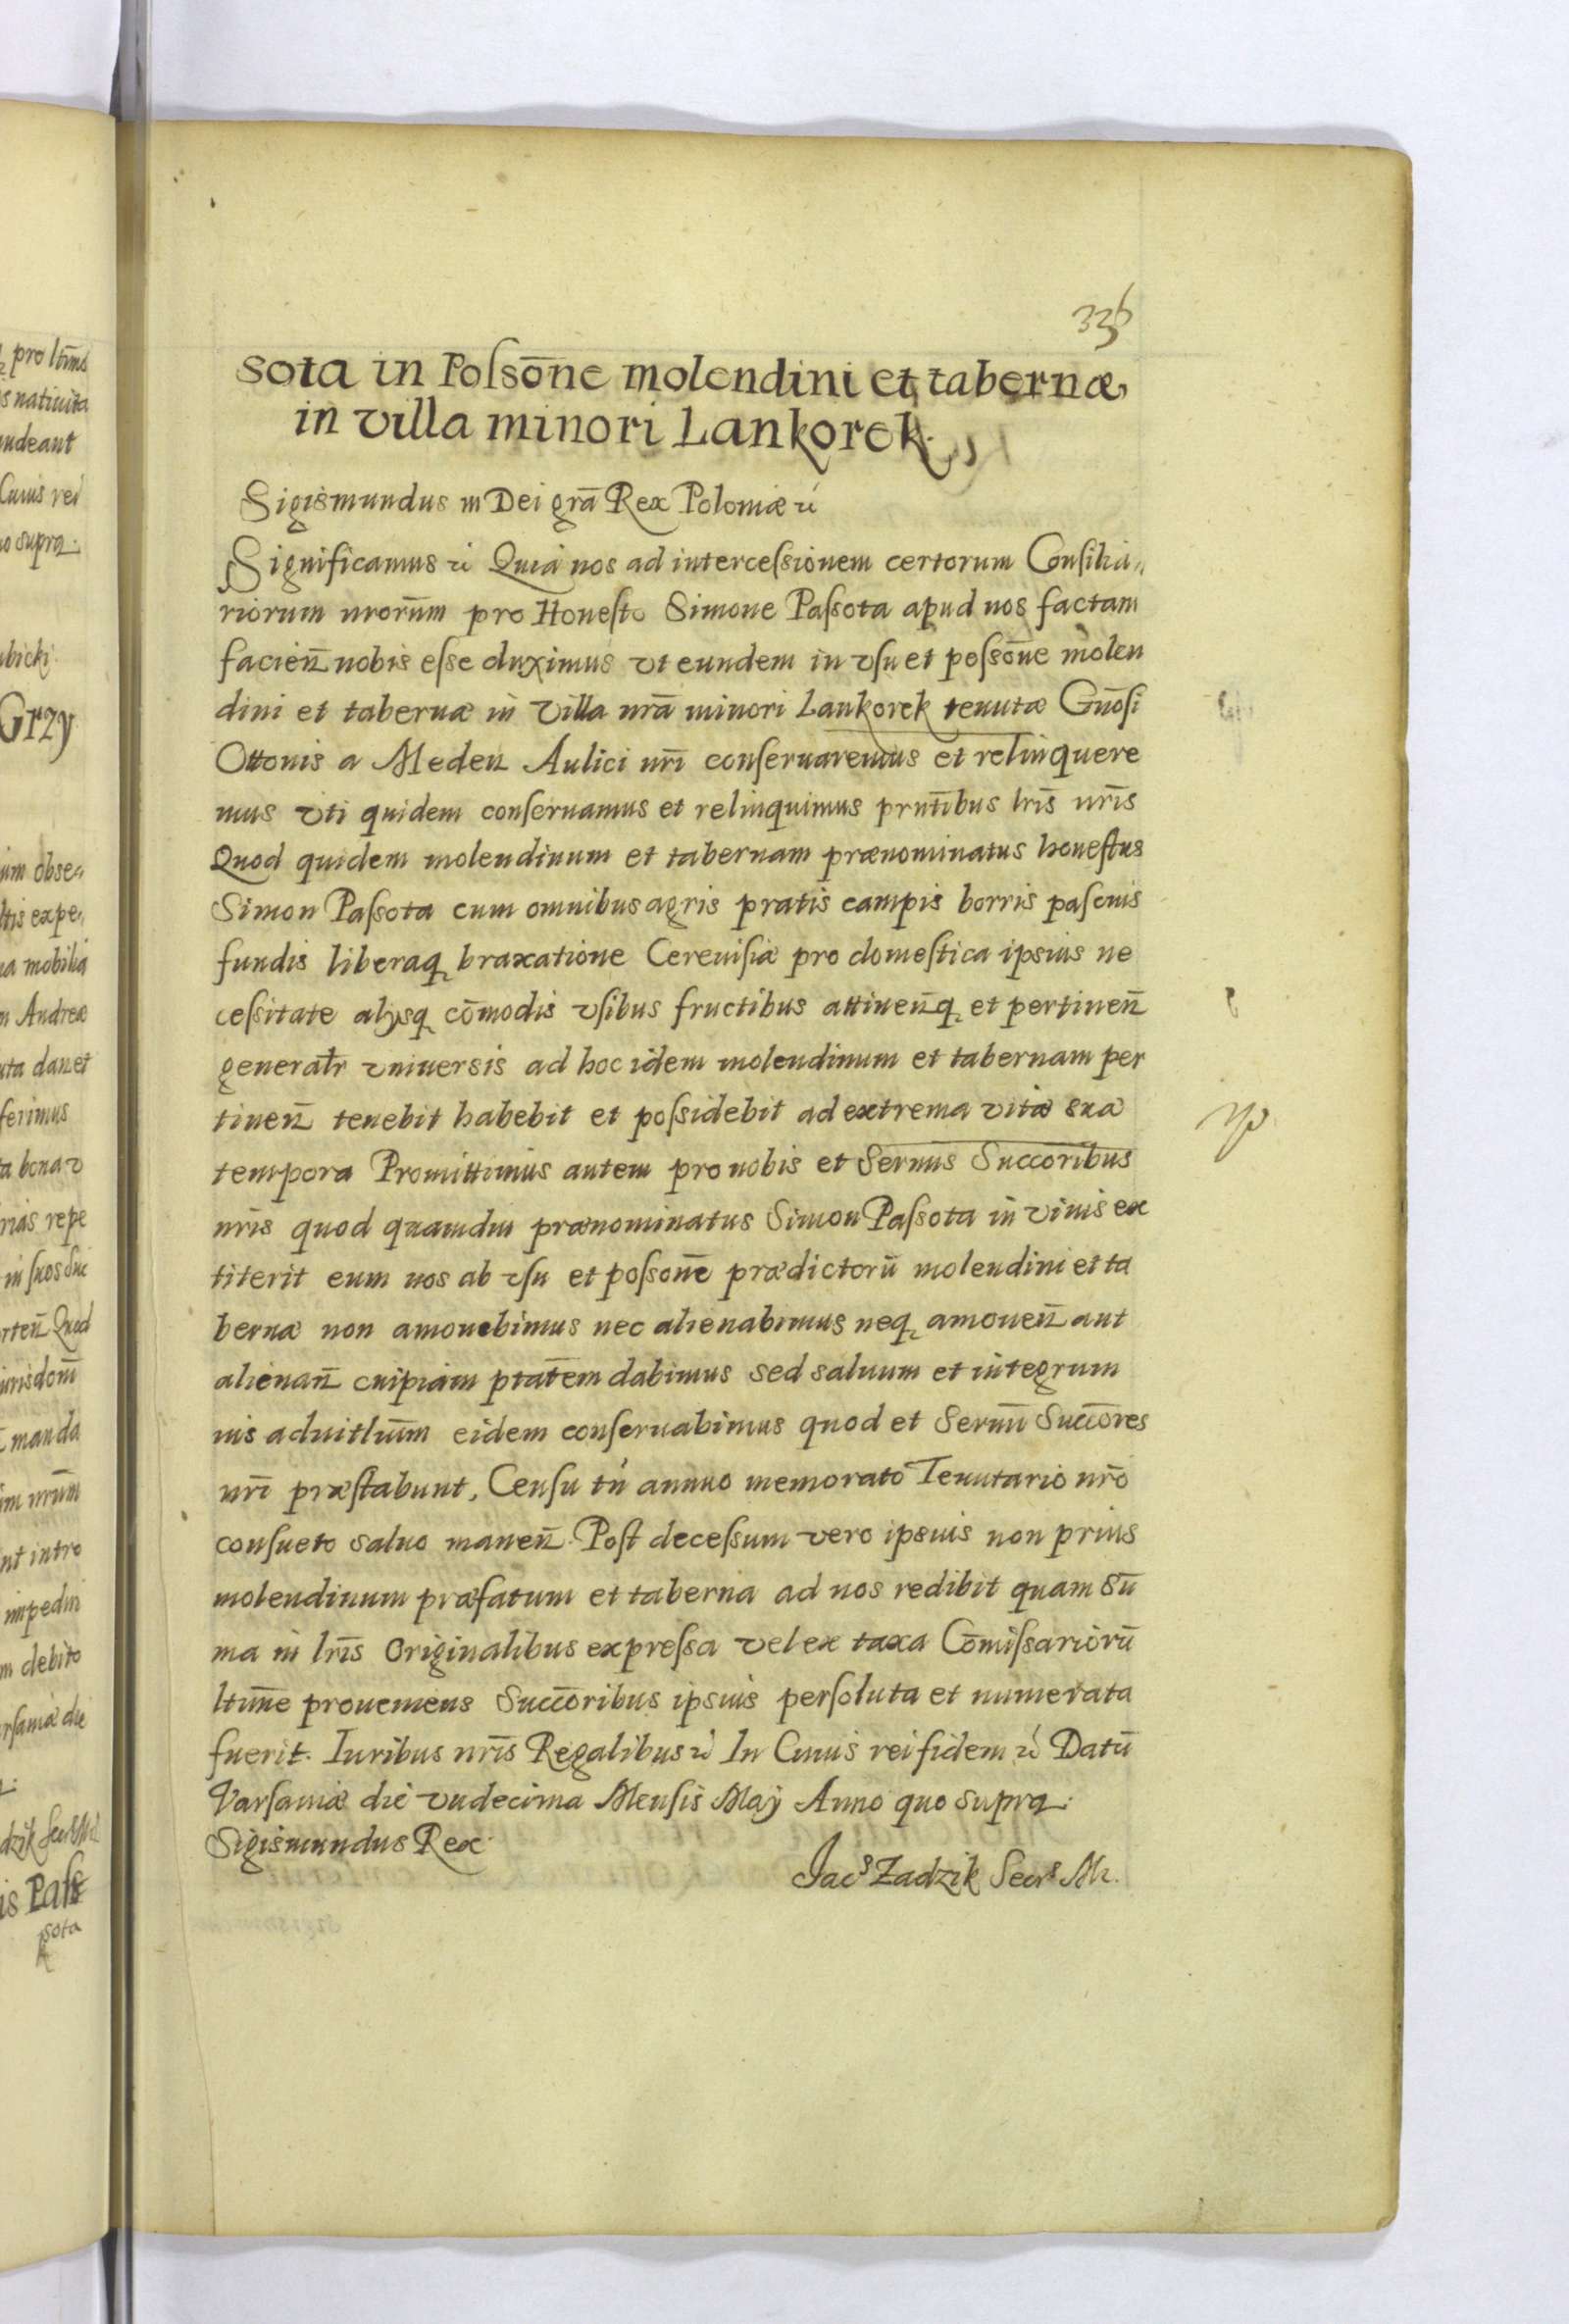 336
sota in Poſsōne molendini et tabernæ
in villa minori Lankorek.
Sigismundus III Dei grā Rex Poloniæ ꝛc
Significamus ꝛc Quia nos ad interceſsionem certorum Conſilia„
riorum nrorūm pro Honeſto Simone Paſsota apud nos factam
facien̄ nobis eſse duximus vt eundem in vſu et poſsōne molen
dini et tabernæ in Villa nrā minori Lankorek tenutæ Gn̄oſi
Ottonis a Meden Aulici nr̄i conſeruaremus et relinquere
mus vti quidem conſeruamus et relinquimus prnt̄ibus lrīs nrīs
Quod quidem molendinum et tabernam prænominatus honeſtus
Simon Paſsota cum omnibus agris pratis campis borris paſcuis
fundis liberaq braxatione Cereuiſiæ pro domeſtica ipsius ne
ceſsitate alysq cōmodis vſibus fructibus attinen̄q et pertinen̄
generalr̄ vniuersis ad hoc idem molendinum et tabernam per
tinen̄ tenebit habebit et poſsidebit ad extrema vitæ suæ
tempora Promittimus autem pro nobis et Sernis̄ Succorībus
nris quod quamdiu prænominatus Simon Paſsota in viuis ex
titerit eum nos ab vſu et poſsonē prædictorū molendini et ta
bernæ non amouebimus nec alienabimus neq amouen̄ aut
alienan̄ cuipiam ptatēm dabimus sed saluum et integrum
ius aduitlium̄ eidem conſeruabimus quod et Sernn̄i Succōres
nrī præſtabunt, Cenſu tn̄ annuo memorato Tenutario nrō
conſueto saluo manen̄. Poſt deceſsum vero ipsius non prius
molendinum præfatum et taberna ad nos redibit quam Sū
ma in lrīs Originalibus expreſsa vel ex taxa Cōmiſsariorū
ltim̄e proueniens Succōribus ipsius perſoluta et numerata
fuerit. Iuribus nrīs Regalibus ꝛc In Cuius rei fidem ꝛc Datū
Varſauiæ die vndecima Mensis Maÿ Anno quo supra.
Sigismundus Rex
Jacs Zadzik Secrs M.